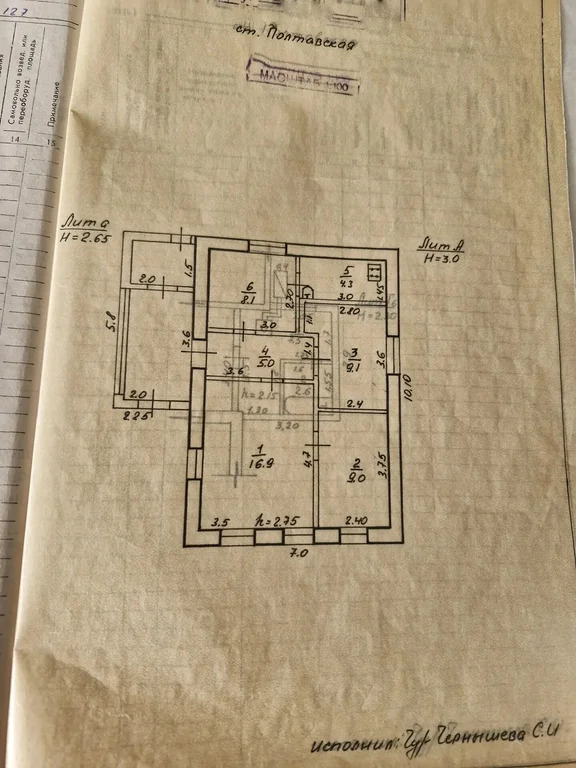 127
Самовольно возвед. или
переоборуд. площадь
Примечание
14
15
ст. Полтавская
МАСШТАБ 1:100
Лит а
H=2.65
Лит А
H=3.0
2.0
1.5
5.8
3.6
2.0
2.25
6
8.1
2.70
3.0
5
4.3
3.0
1.45
2.80
1.1
4
5.0
3.6
1.4
3
9.1
3.6
2.4
10.10
2.6
h=2.15
1.20
3.20
1.55
1.7
1
16.9
4.7
3.5
h=2.75
2
9.0
3.75
2.40
7.0
Исполнил: Чур Чернышева С.И